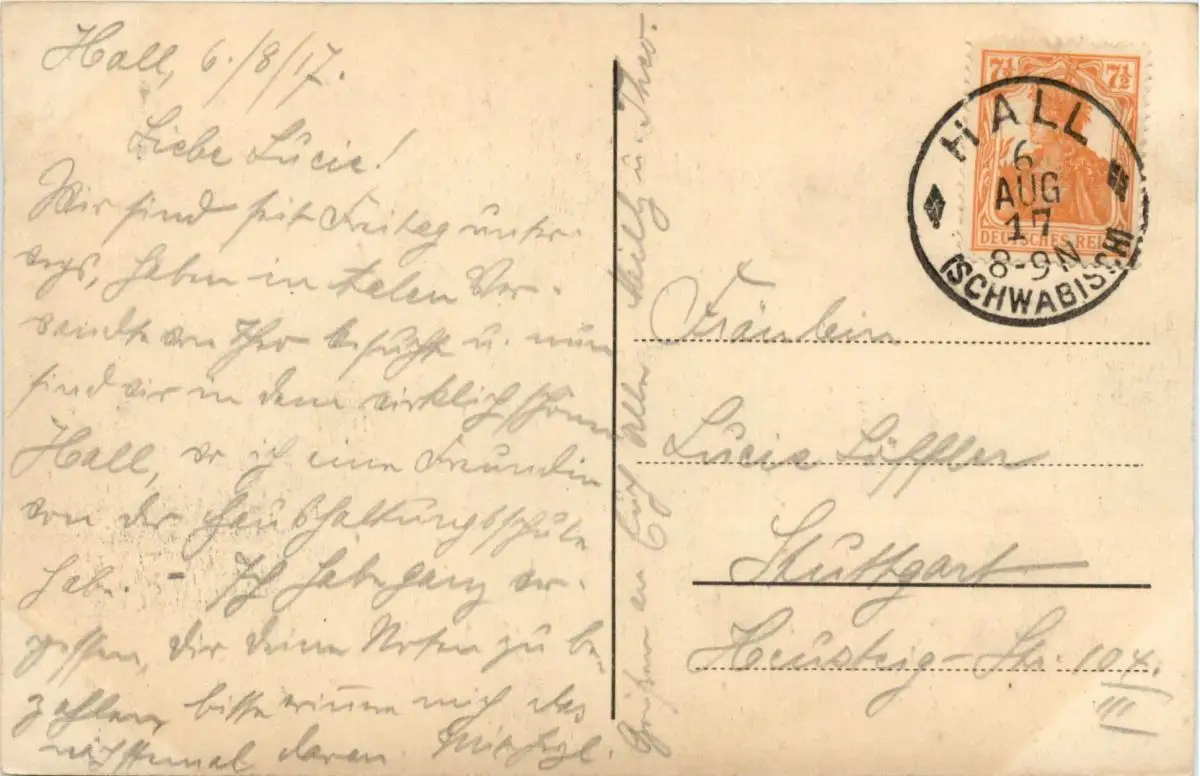 Hall, 6./8/17.
Liebe Lucie!
Wir sind seit Freitag unter-
wegs, haben in Aalen Ver-
wandte von Theo besucht u. nun
sind wir in dem wirklich schönen
Hall, wo ich eine Freundin
von der Haushaltungsschule
habe. - Ich habe ganz ver-
gessen, dir deine Noten zu be-
zahlen, bitte erinnere mich das
nächstemal daran. Mit herzl.
Grüßen an Euch alle u. Theo.
7½ 7½
DEUTSCHES REICH
HALL
6
AUG
17
8-9N
(SCHWÄBISCH)
Fräulein
Lucie Löffler
Stuttgart
Heusteig-Str. 104.
III